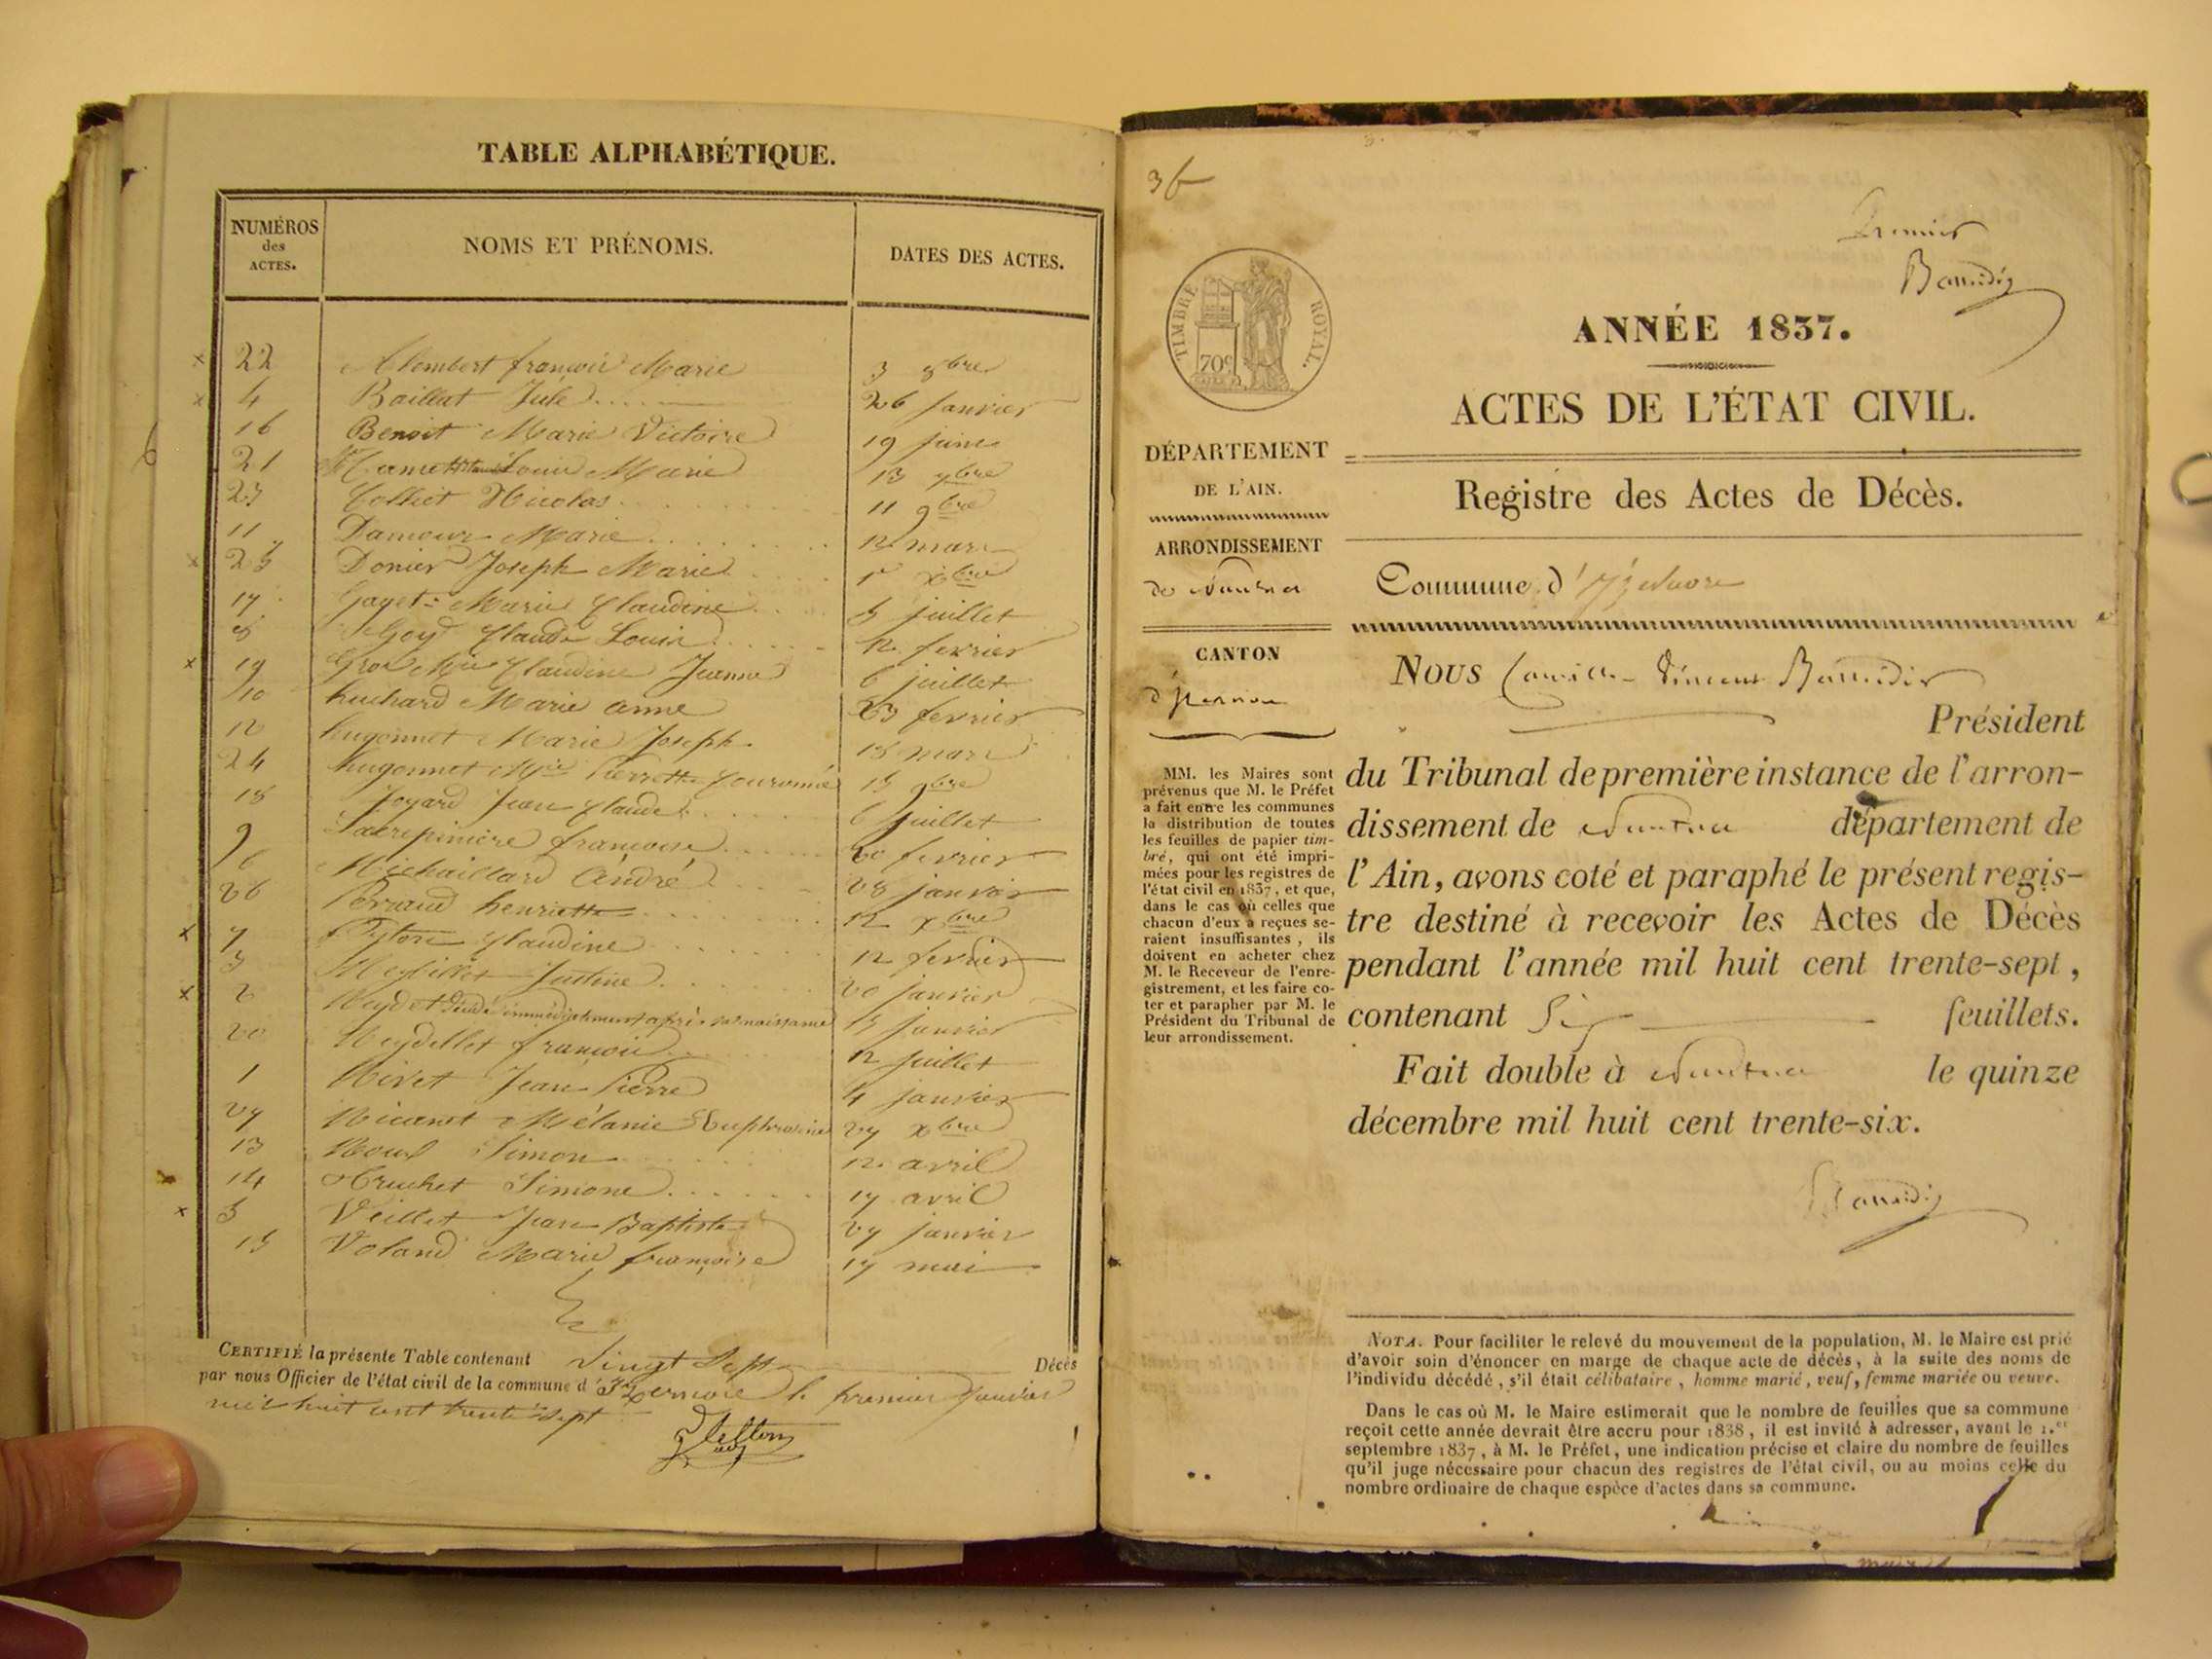 TABLE ALPHABÉTIQUE.
NUMÉROS
des
ACTES.
NOMS ET PRÉNOMS.
DATES DES ACTES.
22 françois Marie 3 8bre
4 Baillat Jule 26 janvier
16 Benoit Marie Victoire 19 juin
21 Louis Marie 13 7bre
23 Colliet Nicolas 11 9bre
11 Damour Marie 12 mars
25 Donier Joseph Marie 1r Xbre
17 Gayet Marie Claudine 5 juillet
8 Goy Claude Louis 12 fevrier
19 Gros Mie Claudine Jeanne 6 juillet
10 huchard Marie anne 23 fevrier
12 hugonnet Marie Joseph 18 mars
24 hugonnet Mie Pierrette 15 9bre
18 Joyard Jean Claude 6 juillet
9 françoise 20 fevrier
6 Michaillard André 28 janvier
26 Perraud henriette 12 Xbre
7 Claudine 12 fevrier
3 Justine 20 janvier
2 Reydet Décédé immédiatement après sa naissance 15 janvier
20 Reydellet françois 12 juillet
1 Rivet Jean Pierre 4 janvier
27 Mélanie Euphrosine 27 Xbre
13 Roux Simon 12 avril
14 Truchet Simone 17 avril
5 Veillet Jean Baptiste 27 janvier
15 Voland Marie françoise 17 mai
CERTIFIÉ la présente Table contenant Vingt Sept Décès
par nous Officier de l'état civil de la commune d'Izernore le premier Janvier
mil huit cent trente sept
36
Premier
Baudin
TIMBRE ROYAL.
70c
ANNÉE 1837.
ACTES DE L'ÉTAT CIVIL.
Registre des Actes de Décès.
DÉPARTEMENT
DE L'AIN.
ARRONDISSEMENT
de Nantua
CANTON
d'Izernore
MM. les Maires sont
prévenus que M. le Préfet
a fait entre les communes
la distribution de toutes
les feuilles de papier tim-
bré, qui ont été impri-
mées pour les registres de
l'état civil en 1837, et que,
dans le cas où celles que
chacun d'eux a reçues se-
raient insuffisantes, ils
doivent en acheter chez
M. le Receveur de l'enre-
gistrement, et les faire co-
ter et parapher par M. le
Président du Tribunal de
leur arrondissement.
Commune d'Izernore
NOUS Camille Vincent
Président
du Tribunal de première instance de l'arron-
dissement de Nantua département de
l'Ain, avons coté et paraphé le présent regis-
tre destiné à recevoir les Actes de Décès
pendant l'année mil huit cent trente-sept,
contenant Six feuillets.
Fait double à Nantua le quinze
décembre mil huit cent trente-six.
NOTA. Pour faciliter le relevé du mouvement de la population, M. le Maire est prié
d'avoir soin d'énoncer en marge de chaque acte de décès, à la suite des noms de
l'individu décédé, s'il était célibataire, homme marié, veuf, femme mariée ou veuve.
Dans le cas où M. le Maire estimerait que le nombre de feuilles que sa commune
reçoit cette année devrait être accru pour 1838, il est invité à adresser, avant le 1.er
septembre 1837, à M. le Préfet, une indication précise et claire du nombre de feuilles
qu'il juge nécessaire pour chacun des registres de l'état civil, ou au moins celle du
nombre ordinaire de chaque espèce d'actes dans sa commune.